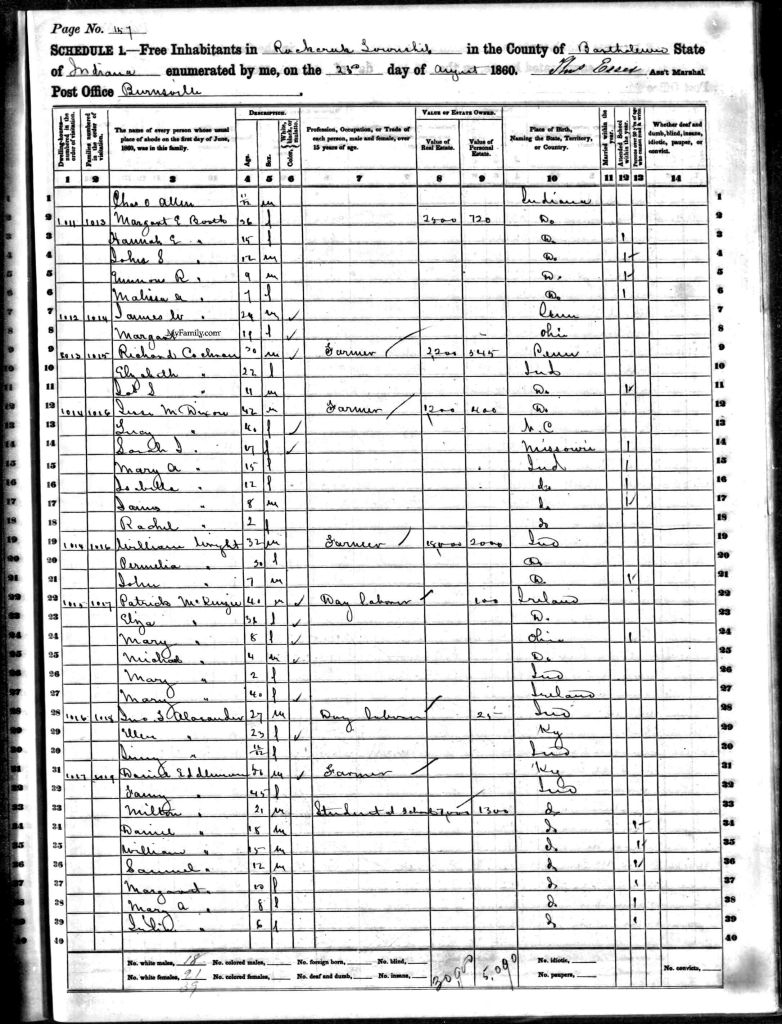 Page No. 157
SCHEDULE 1.—Free Inhabitants in Rockcreek Township in the County of Bartholomew State
of Indiana enumerated by me, on the 23rd day of August 1860. Essex Ass't Marshal
Post Office Burnsville
DESCRIPTION. VALUE OF ESTATE OWNED.
Dwelling-houses— numbered in the order of visitation. Families numbered in the order of visitation. The name of every person whose usual place of abode on the first day of June, 1860, was in this family. Age. Sex. Color, White, black, or mulatto. Profession, Occupation, or Trade of each person, male and female, over 15 years of age. Value of Real Estate. Value of Personal Estate. Place of Birth, Naming the State, Territory, or Country. Married within the year. Attended School within the year. Persons over 20 y'rs of age who cannot read & write. Whether deaf and dumb, blind, insane, idiotic, pauper, or convict.
1 2 3 4 5 6 7 8 9 10 11 12 13 14
1 Chas O Allen m Indiana 1
2 1011 1013 Margaret E Booth 36 f 2500 720 Do. 2
3 Hannah E " 15 f Do. 1 3
4 John S " 12 m Do. 1 4
5 R. " 9 m Do. 1 5
6 Malissa A " 7 f Do. 1 6
7 1012 1014 James W " 24 m Penn 7
8 Margaret MyFamily.com 19 f Ohio 8
9 1013 1015 Richard 30 m Farmer 2200 345 Penn 9
10 Elizabeth " 22 f Ind 10
11 S " 11 m Do. 11
12 1014 1016 M Dixon 42 m Farmer 1200 400 Do. 12
13 Lucy " 40 f N. C 13
14 Sarah J. " 17 f Missourie 1 14
15 Mary A " 15 f Ind 1 15
16 Isabella " 12 f do 1 16
17 James " 8 m do 17
18 Rachel " 2 f do 18
19 1014 1016 William Wright 32 m Farmer 2000 Ind 19
20 Permelia " 30 f Do. 20
21 John " 7 m Do. 21
22 1015 1017 Patrick McKinzie 40 m Day laborer 100 Ireland 22
23 Eliza " f D. 23
24 Mary " 8 f Ohio 1 24
25 Michael " 4 m Do. 25
26 Mary " 2 f Ind 26
27 Mary " 40 f Ireland 27
28 1016 1018 Jno S Alaxander 27 m Day laborer 25 Ind 28
29 Ellen " 23 f Ky 29
30 " f Ind 30
31 1017 1019 David Eddleman 56 m Farmer Ky 31
32 Fanny " 45 f Ind 32
33 Milton " 21 m Student at School 1300 do 33
34 Daniel " 18 m do 34
35 William " 15 m do 35
36 Samuel " 12 m do 36
37 Margaret " 10 f do 37
38 Mary A " 8 f do 38
39 " 6 f do 39
40 40
No. white males, 18 No. colored males, No. foreign born, No. blind, No. idiotic, No. convicts,
No. white females, 21 No. colored females, No. deaf and dumb, No. insane, 5,090 No. paupers,
39